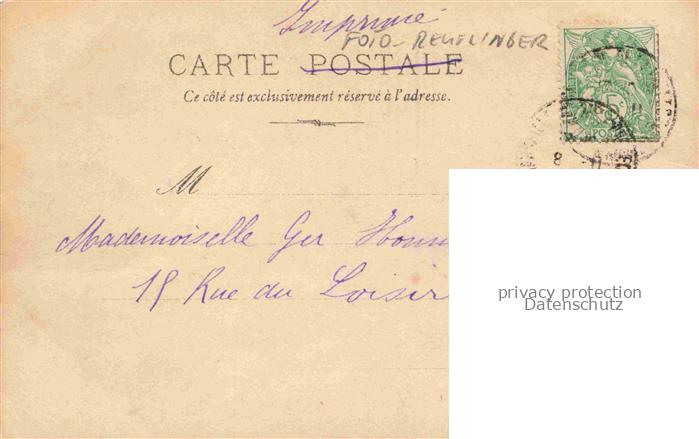 Imprimé
FOTO-REUTLINGER
CARTE POSTALE
Ce côté est exclusivement réservé à l'adresse.
M
Mademoiselle Ger
15 Rue du Loisir
privacy protection
Datenschutz
POSTES
8